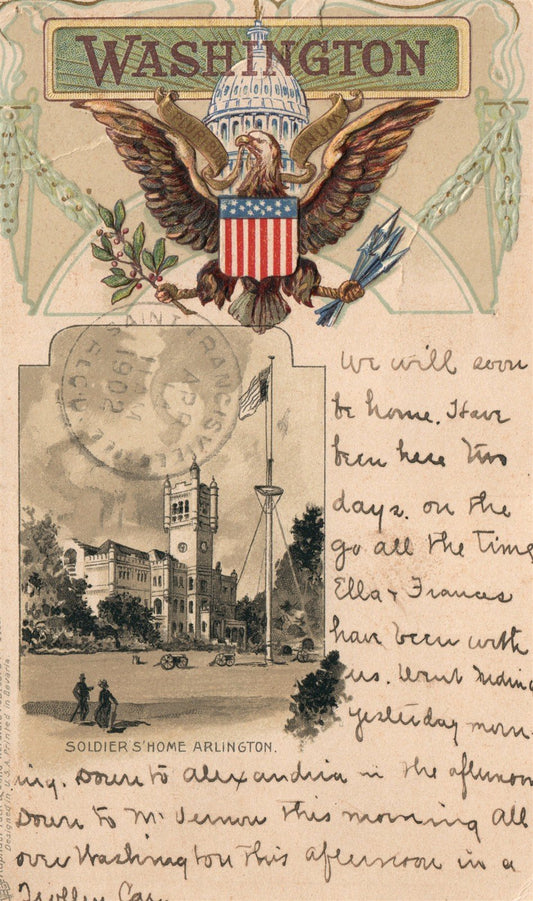 WASHINGTON
SAINT FRANCISVILLE
APR
11 AM
1902
REC'D
We will soon
be home. Have
been here two
days. on the
go all the time
Ella & Frances
have been with
us. Went riding
yesterday morn-
SOLDIER'S' HOME ARLINGTON.
ing. Down to Alexandria in the afternoon
Down to Mt Vernon this morning All
over Washington this afternoon in a
Trolley Car
Designed in U.S.A. Printed in Bavaria